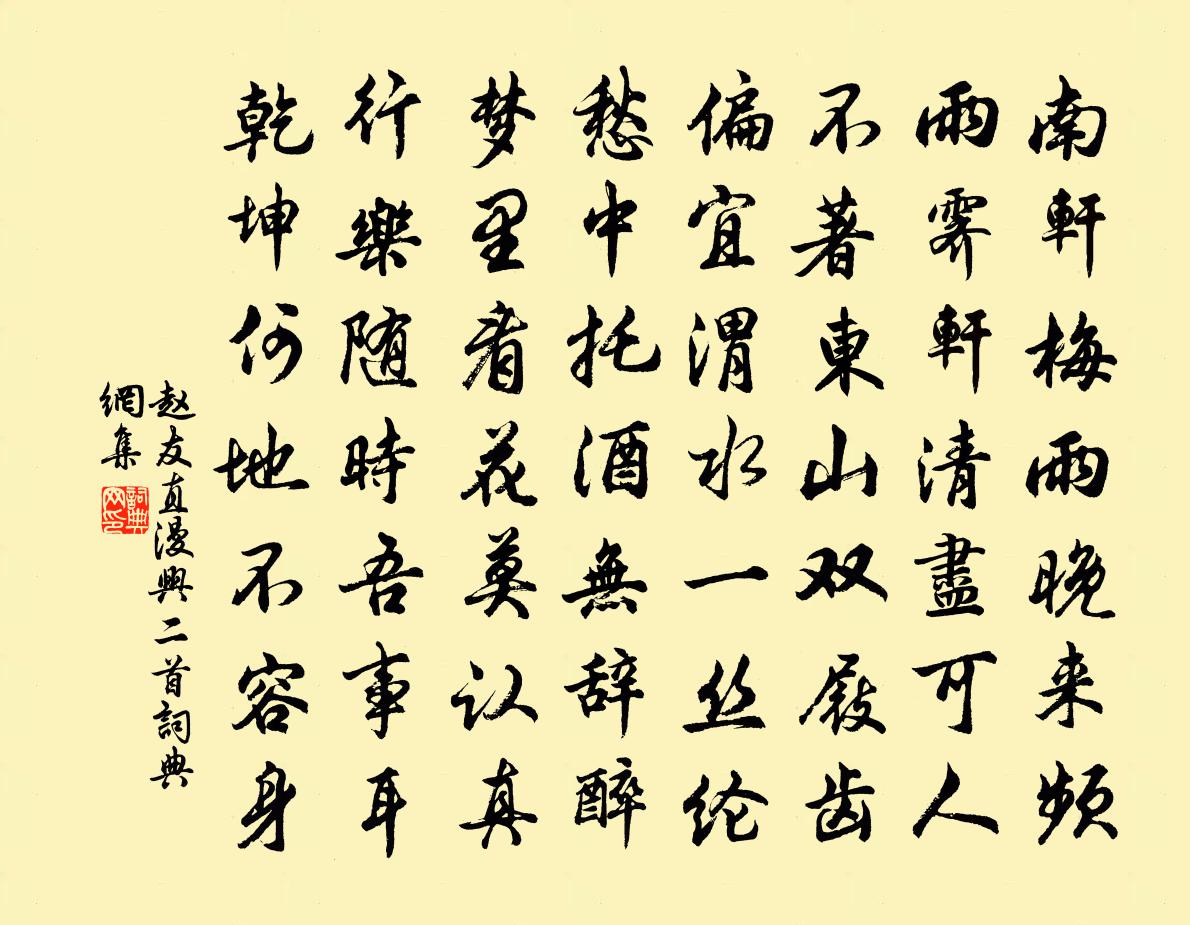 南軒梅雨晚来頻
雨霽軒清盡可人
不著東山双屐齿
偏宜渭水一丝纶
愁中托酒無辞醉
梦里看花莫认真
行樂随時吾事耳
乾坤何地不容身
赵友直漫興二首詞典
網集
詞典
网印